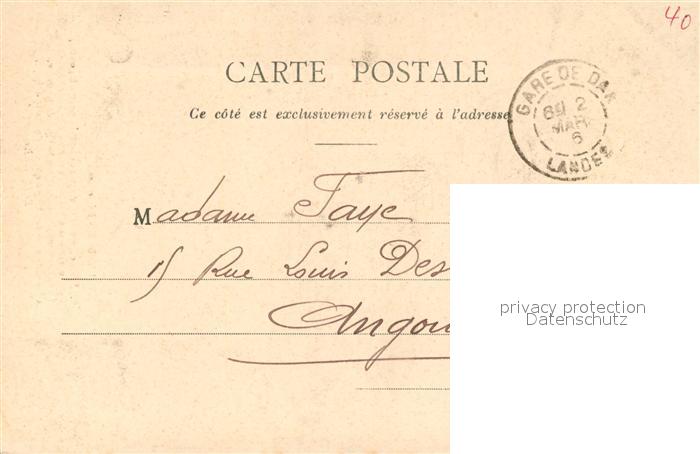 40
CARTE POSTALE
Ce côté est exclusivement réservé à l'adresse
GARE DE DAX
2
MAR
6
LANDES
Madame Faye
15 Rue Louis Des
Angou
privacy protection
Datenschutz